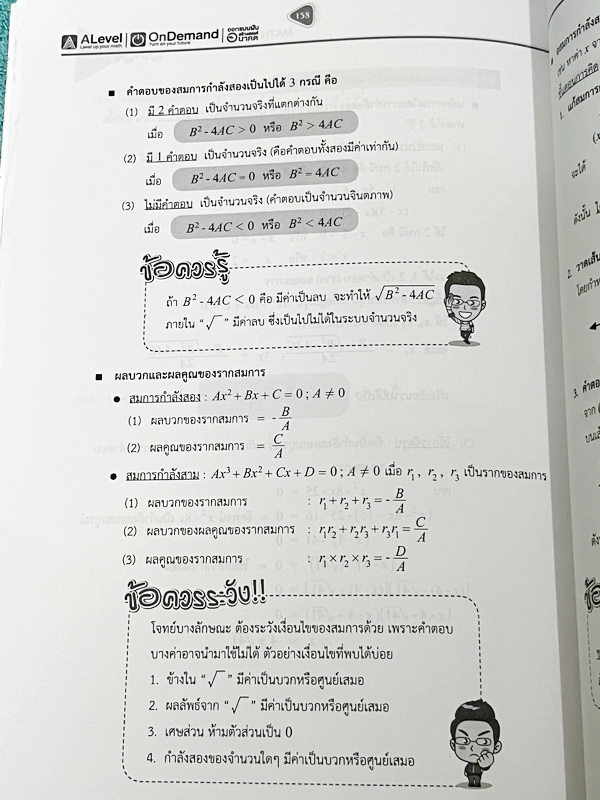 158
ALevel
Level up your math
OnDemand
Turn on your future
ออกแบบฝัน
สร้างสรรค์
อนาคต
■ คำตอบของสมการกำลังสองเป็นไปได้ 3 กรณี คือ
(1) มี 2 คำตอบ เป็นจำนวนจริงที่แตกต่างกัน
เมื่อ B² - 4AC > 0 หรือ B² > 4AC
(2) มี 1 คำตอบ เป็นจำนวนจริง (คือคำตอบทั้งสองมีค่าเท่ากัน)
เมื่อ B² - 4AC = 0 หรือ B² = 4AC
(3) ไม่มีคำตอบ เป็นจำนวนจริง (คำตอบเป็นจำนวนจินตภาพ)
เมื่อ B² - 4AC < 0 หรือ B² < 4AC
ข้อควรรู้
ถ้า B² - 4AC < 0 คือ มีค่าเป็นลบ จะทำให้ √(B² - 4AC)
ภายใน "√" มีค่าลบ ซึ่งเป็นไปไม่ได้ในระบบจำนวนจริง
■ ผลบวกและผลคูณของรากสมการ
● สมการกำลังสอง : Ax² + Bx + C = 0 ; A ≠ 0
(1) ผลบวกของรากสมการ = -B/A
(2) ผลคูณของรากสมการ = C/A
● สมการกำลังสาม : Ax³ + Bx² + Cx + D = 0 ; A ≠ 0 เมื่อ r₁ , r₂ , r₃ เป็นรากของสมการ
(1) ผลบวกของรากสมการ : r₁ + r₂ + r₃ = -B/A
(2) ผลบวกของผลคูณของรากสมการ : r₁r₂ + r₂r₃ + r₃r₁ = C/A
(3) ผลคูณของรากสมการ : r₁ × r₂ × r₃ = -D/A
ข้อควรระวัง!!
โจทย์บางลักษณะ ต้องระวังเงื่อนไขของสมการด้วย เพราะคำตอบ
บางค่าอาจนำมาใช้ไม่ได้ ตัวอย่างเงื่อนไขที่พบได้บ่อย
1. ข้างใน "√" มีค่าเป็นบวกหรือศูนย์เสมอ
2. ผลลัพธ์จาก "√" มีค่าเป็นบวกหรือศูนย์เสมอ
3. เศษส่วน ห้ามตัวส่วนเป็น 0
4. กำลังสองของจำนวนใดๆ มีค่าเป็นบวกหรือศูนย์เสมอ
1. แก้สมการ
จะได้
ดังนั้น
2. วาดเส้น
โดยกำห
3. คำตอ
จาก (